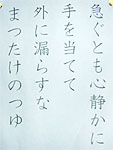 急ぐとも心静かに
手を当てて
外に漏らすな
まつたけのつゆ